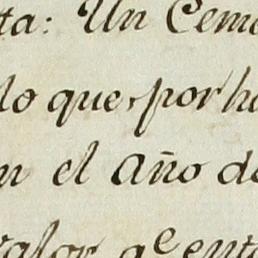 ta: Un Ceme
lo que, por ha
n el Año de
valor qe ente